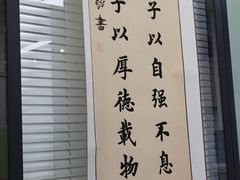 子以自强不息
子以厚德載物
書